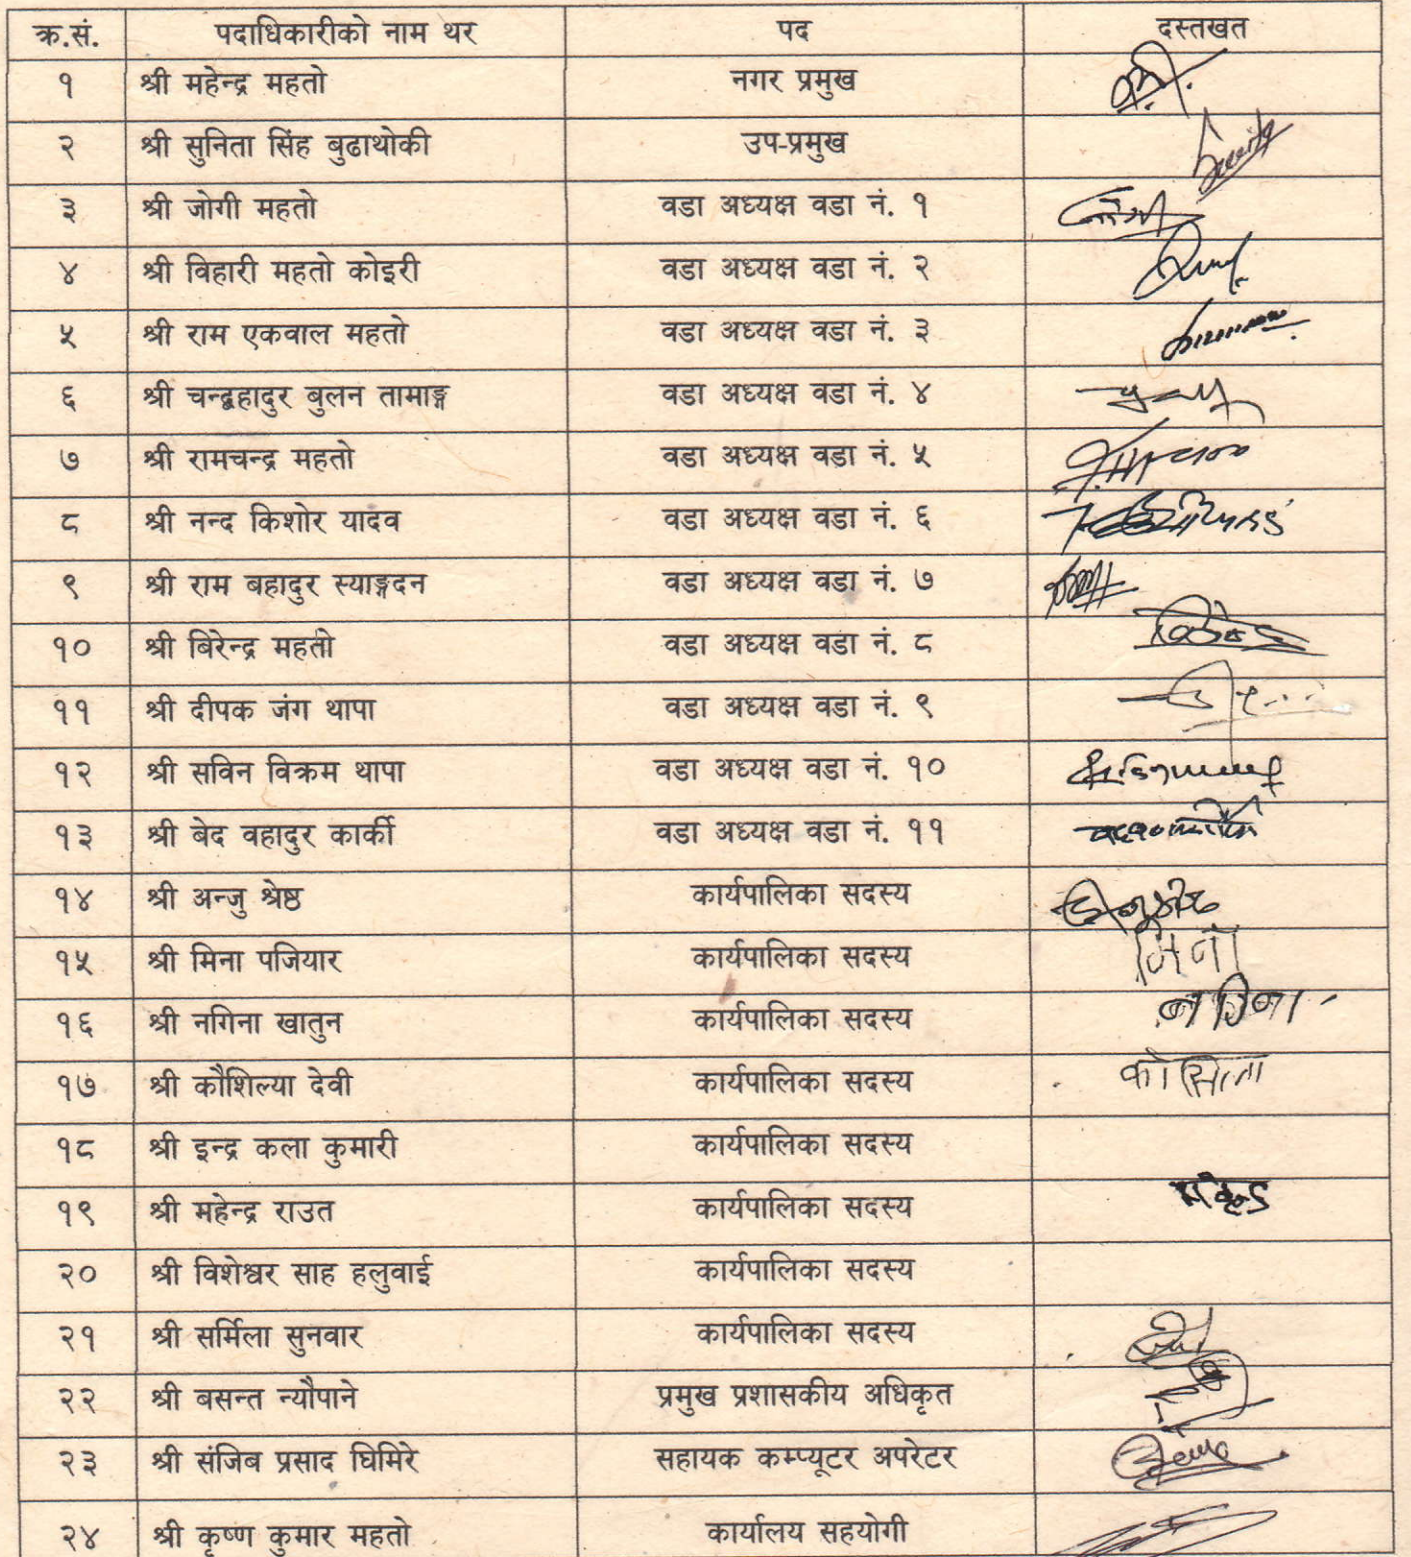 क्र.सं. पदाधिकारीको नाम थर पद दस्तखत
१ श्री महेन्द्र महतो नगर प्रमुख
२ श्री सुनिता सिंह बुढाथोकी उप-प्रमुख
३ श्री जोगी महतो वडा अध्यक्ष वडा नं. १
४ श्री विहारी महतो कोइरी वडा अध्यक्ष वडा नं. २
५ श्री राम एकवाल महतो वडा अध्यक्ष वडा नं. ३
६ श्री चन्द्बहादुर बुलन तामाङ्ग वडा अध्यक्ष वडा नं. ४
७ श्री रामचन्द्र महतो वडा अध्यक्ष वडा नं. ५
८ श्री नन्द किशोर यादव वडा अध्यक्ष वडा नं. ६
९ श्री राम बहादुर स्याङ्गदन वडा अध्यक्ष वडा नं. ७
१० श्री बिरेन्द्र महतो वडा अध्यक्ष वडा नं. ८
११ श्री दीपक जंग थापा वडा अध्यक्ष वडा नं. ९
१२ श्री सविन विक्रम थापा वडा अध्यक्ष वडा नं. १०
१३ श्री बेद वहादुर कार्की वडा अध्यक्ष वडा नं. ११
१४ श्री अन्जु श्रेष्ठ कार्यपालिका सदस्य
१५ श्री मिना पजियार कार्यपालिका सदस्य मिना
१६ श्री नगिना खातुन कार्यपालिका सदस्य
१७ श्री कौशिल्या देवी कार्यपालिका सदस्य
१८ श्री इन्द्र कला कुमारी कार्यपालिका सदस्य
१९ श्री महेन्द्र राउत कार्यपालिका सदस्य
२० श्री विशेश्वर साह हलुवाई कार्यपालिका सदस्य
२१ श्री सर्मिला सुनवार कार्यपालिका सदस्य
२२ श्री बसन्त न्यौपाने प्रमुख प्रशासकीय अधिकृत
२३ श्री संजिब प्रसाद घिमिरे सहायक कम्प्यूटर अपरेटर
२४ श्री कृष्ण कुमार महतो कार्यालय सहयोगी